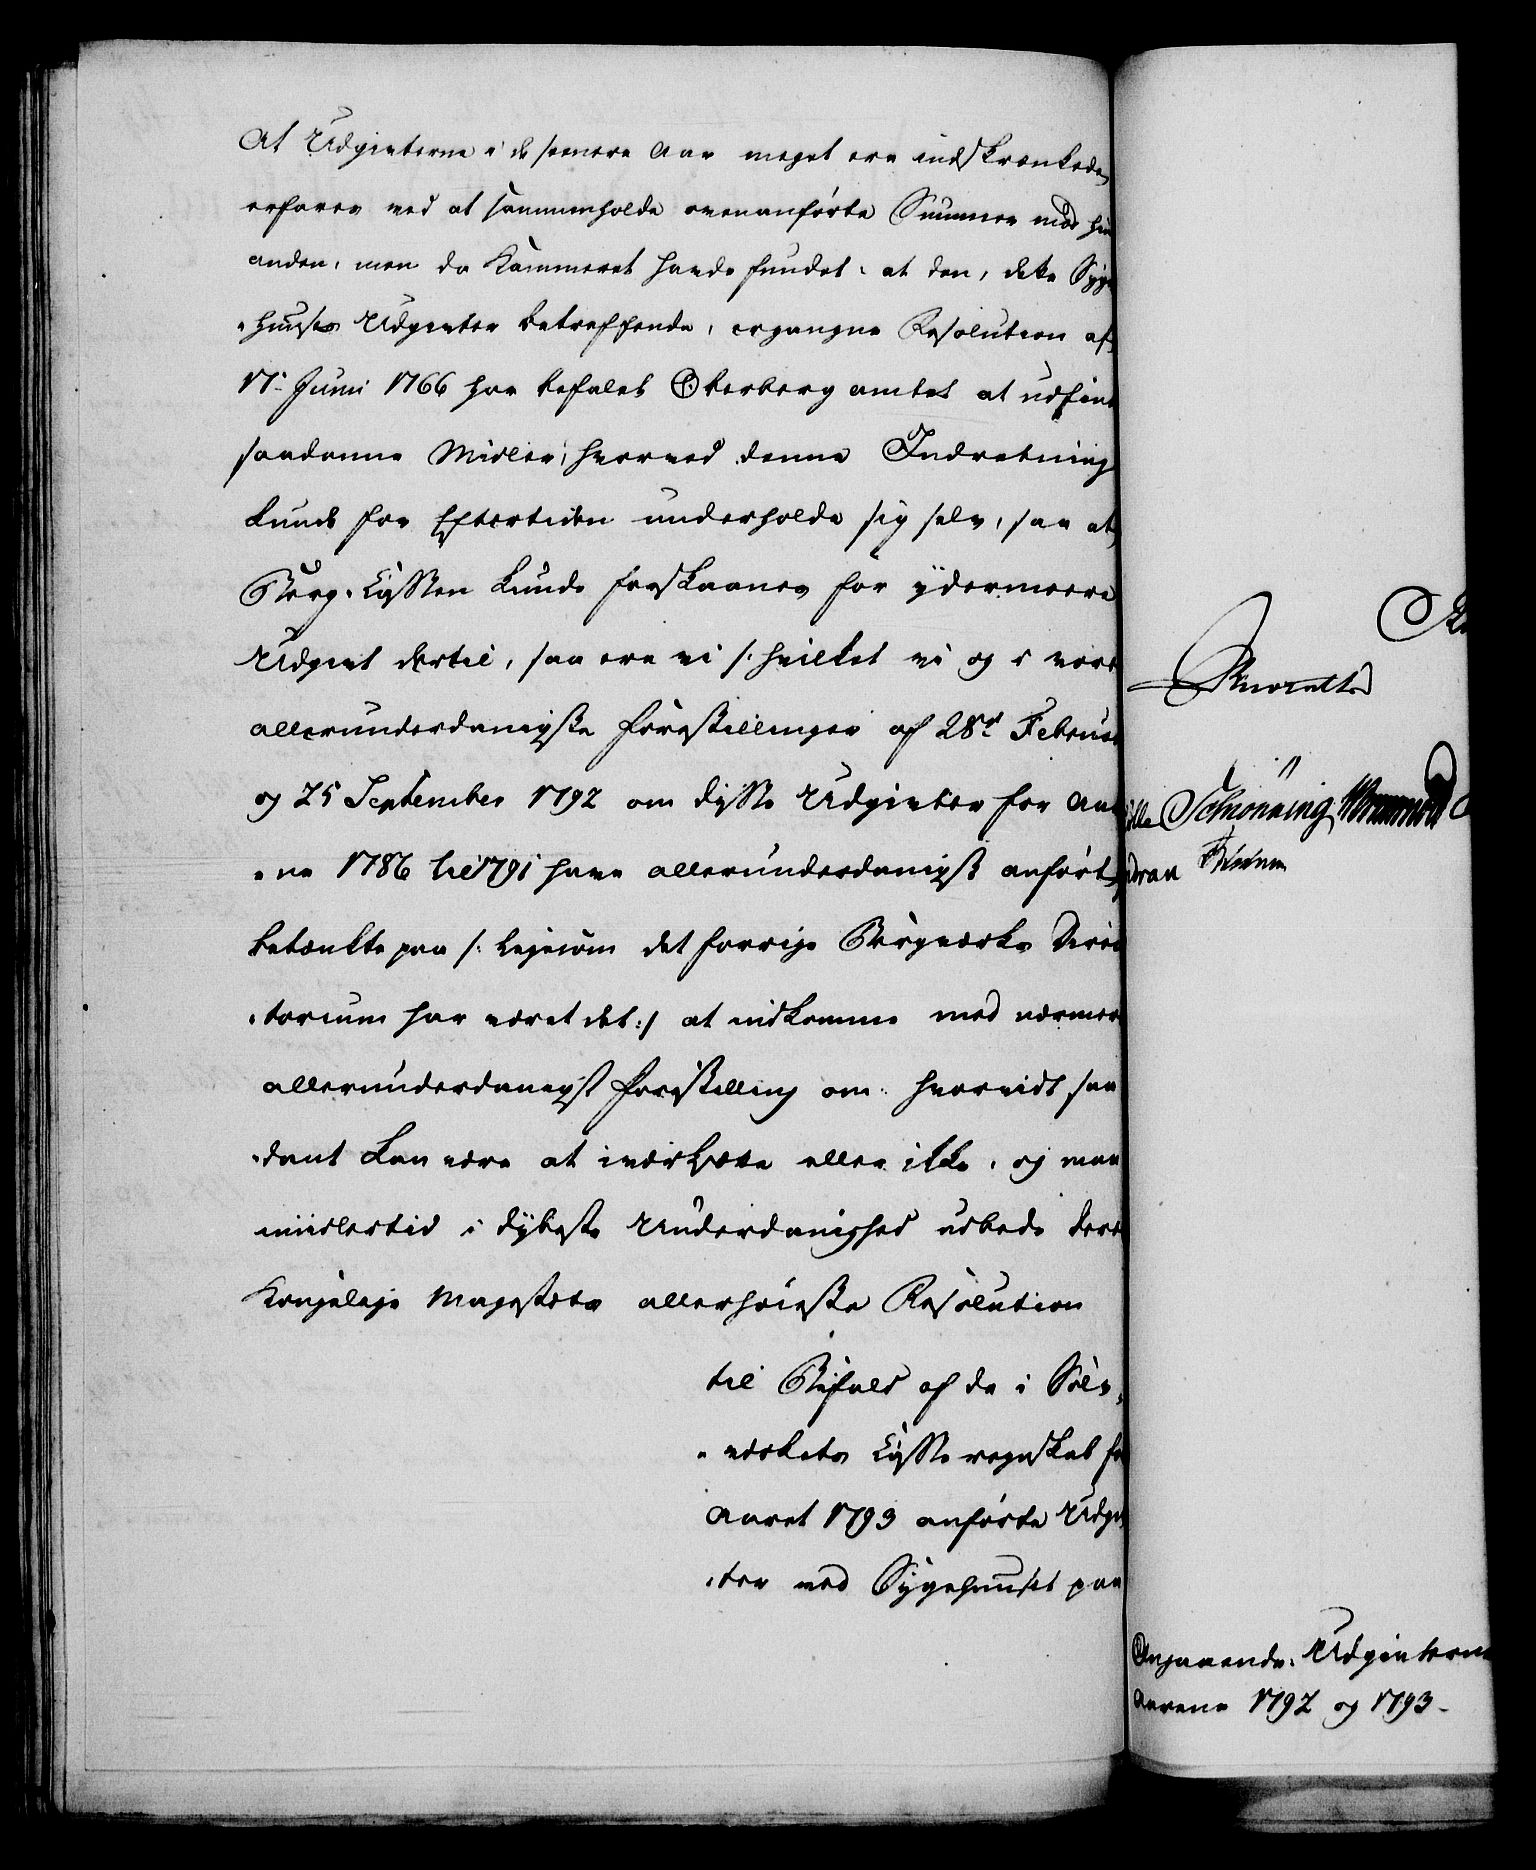 At Udgivterne i de seenere Aar meget ere indskrænkede,
erfares ved at sammenholde ovenanførte Summer mod hin
anden, men da Kammeret havde fundet: at den, dette Syge
-huuses Udgivter betreffende, ergangne Resolution af
17. Junii 1766 har befalet Oberbergamtet at udfind
saadanne Midler, hvorved denne Indretning
kunde for Eftertiden underholde sig selv, saa at
Berg-Cassen kunde forskaanes for ydermeere
Udgivt dertil, saa ere vi /: hvilket vi og i vore
allerunderdanigste Forestillinger af 28de Februar
og 25 September 1792 om disse Udgivter for Aar
-ne 1786 til 1791 have allerunderdanigst anført
betænkte paa /: ligesom det forrige Bergværks Direc
-torium har været det :/ at indkomme med nærmere
allerunderdanigst Forestilling om: hvorvidt saa
-dant kan være at iværksætte eller ikke, og maa
imidlertid i dybeste Underdanighed udbede Deres
Kongelige Majestæts allerhøieste Resolution
til Bifald af de i Sølv-
-værkets Casse regnskab for
Aaret 1793 anførte Udgiv
-ter ved Sygehuuset paa
Schiønning
Angaaende: Udgivterne
Aarene 1792 og 1793.